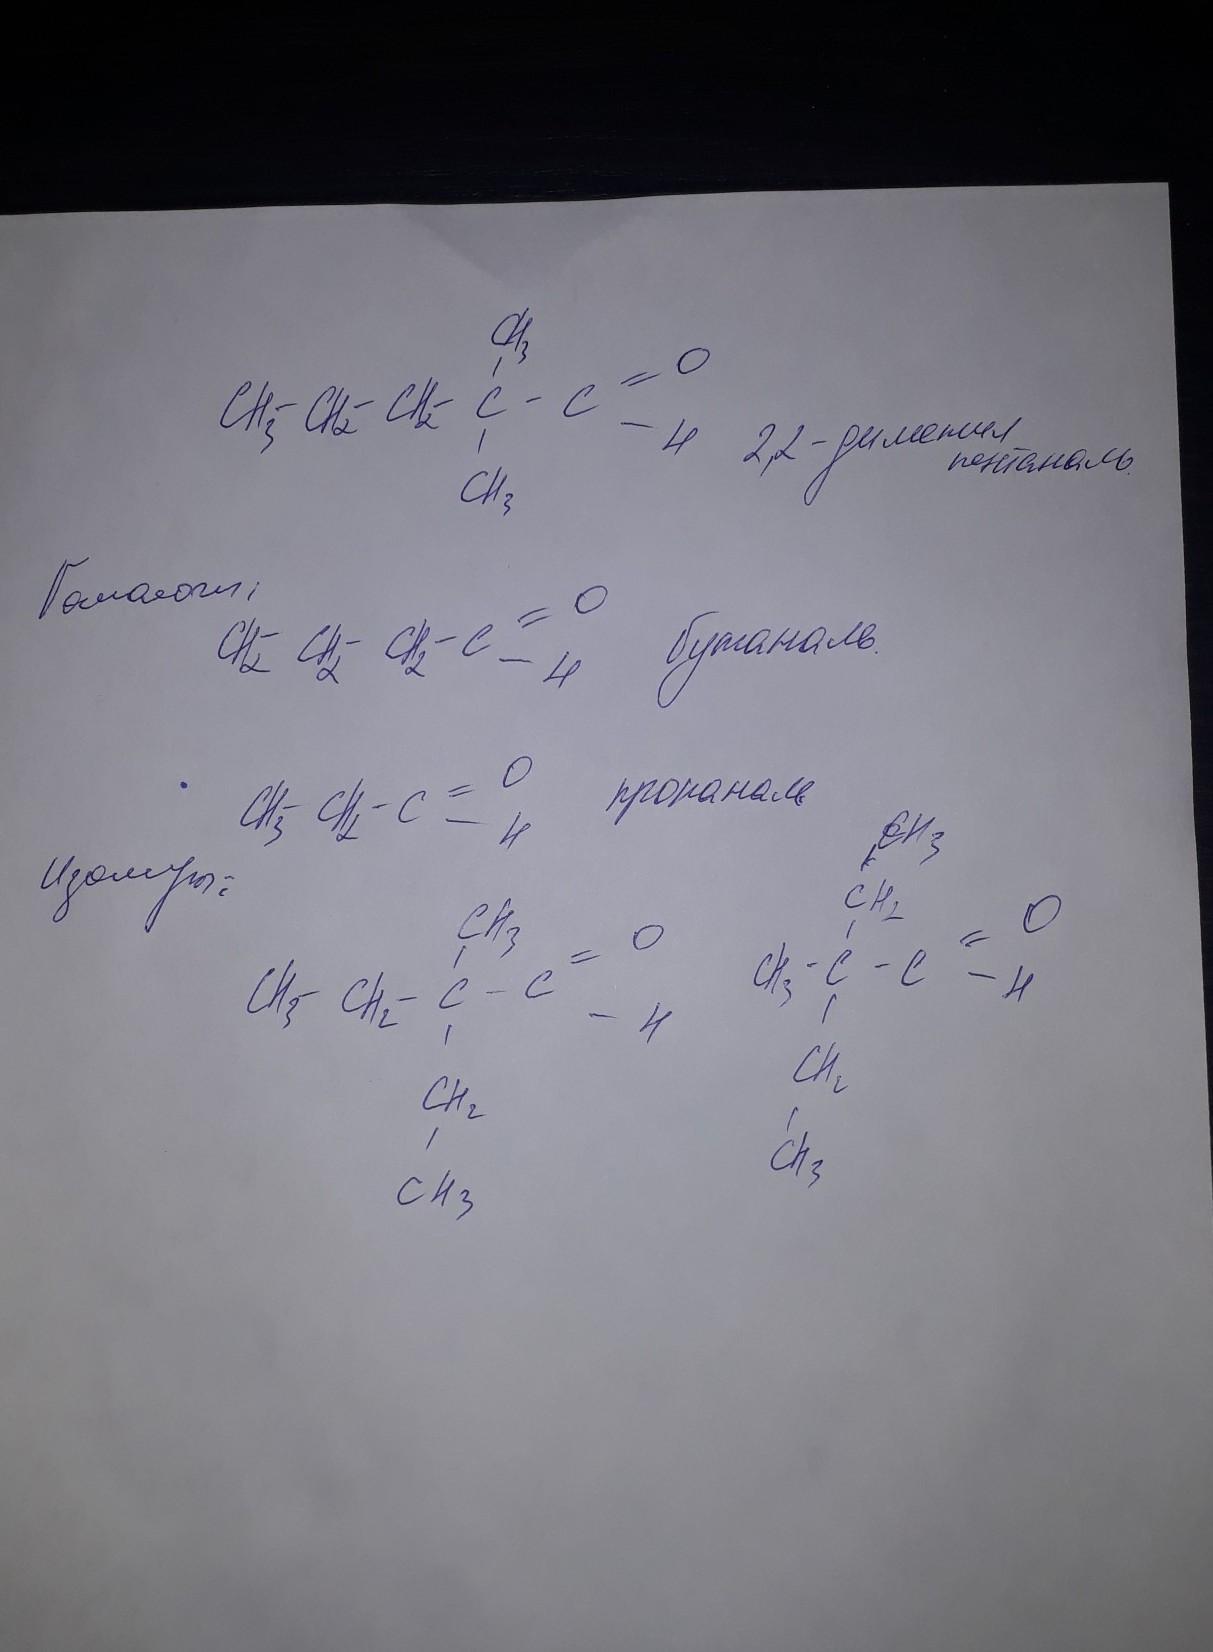 CH3
CH3 - CH2 - CH2 - C - C = O
- H
2,2-диметил
пентаналь.
CH3
Гомологи:
CH2 - CH2 - CH2 - C = O
- H
бутаналь.
CH3 - CH2 - C = O
- H
пропаналь
Изомеры:
CH3
CH3 - CH2 - C - C = O
- H
CH2
CH3
CH3
CH2
CH3 - C - C = O
- H
CH2
CH3